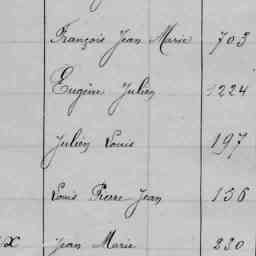 François Jean Marie 703
Eugène Julien 1224
Julien Louis 197
Louis Pierre Jean 136
x Jean Marie 230